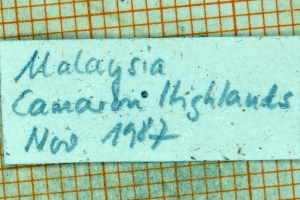 Malaysia
Camaron Highlands
Nov 1987